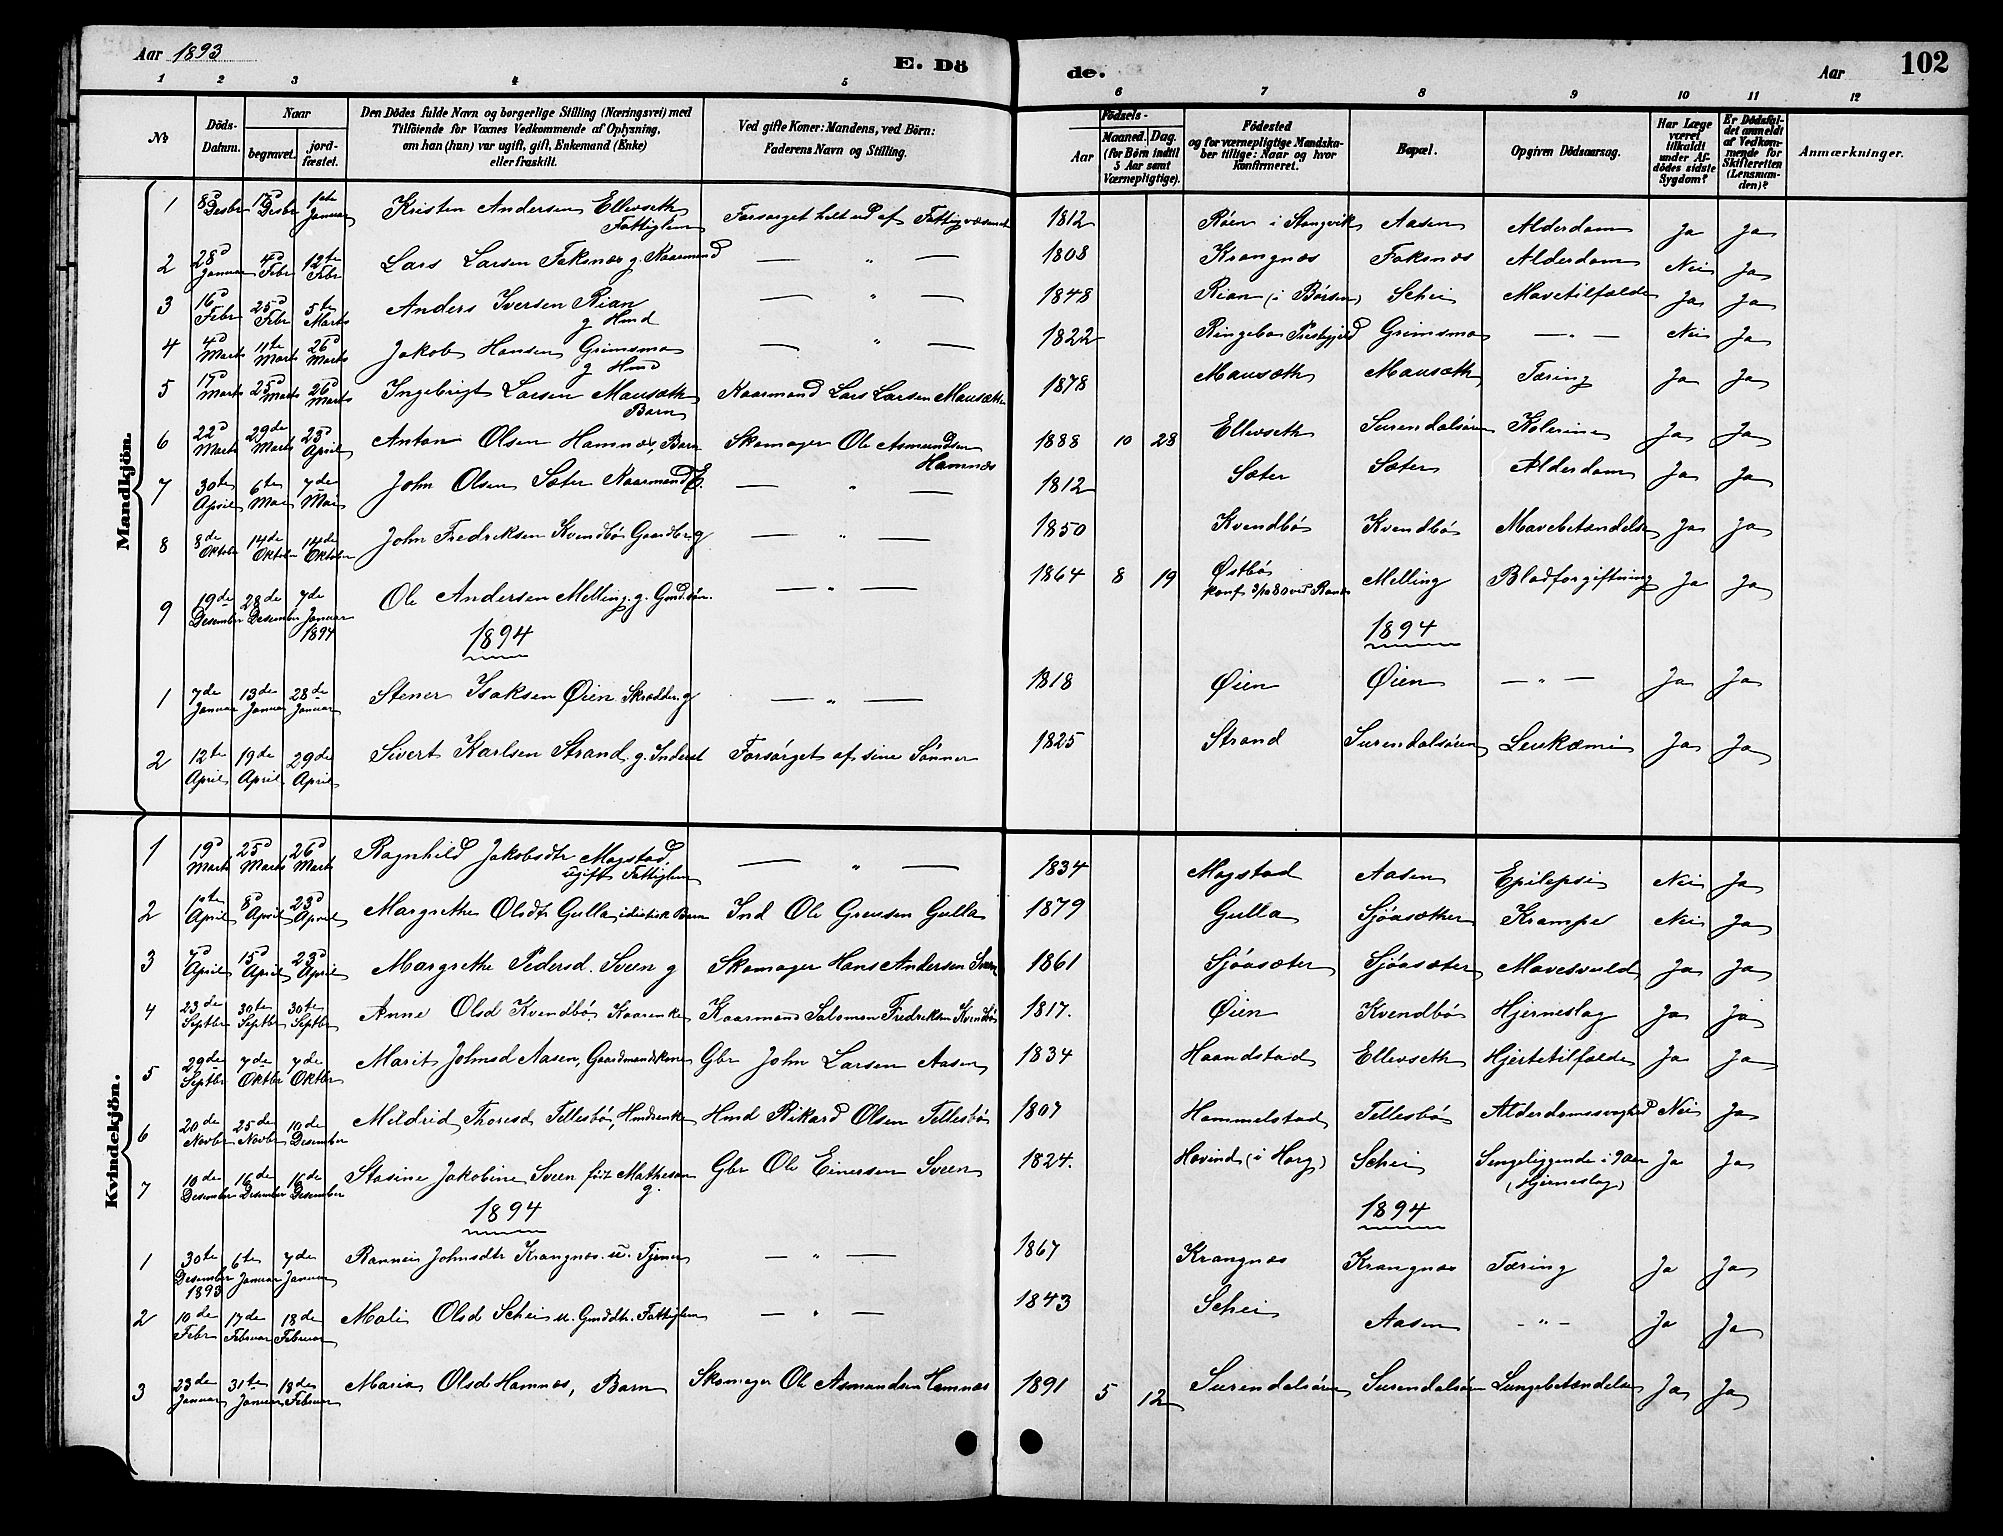 Aar 1893
E. Dö
de.
Aar
102
1 2 3 4 5 6 7 8 9 10 11 12
No
Döds-Datum.
Naar
begravet.
jord-fæstet.
Den Dödes fulde Navn og borgerlige Stilling (Næringsvei) med
Tilföiende for Voxnes Vedkommende af Oplysning,
om han (hun) var ugift, gift, Enkemand (Enke)
eller fraskilt.
Ved gifte Koner: Mandens, ved Börn:
Faderens Navn og Stilling.
Födsels-
Aar
Maaned. Dag.
(for Börn indtil
5 Aar samt
Værnepligtige).
Födested
og for værnepligtige Mandska-
ber tillige: Naar og hvor
konfirmeret.
Bopæl.
Opgiven Dödsaarsag.
Har Læge
været
tilkaldt
under Af-
dödes sidste
Sygdom?
Er Dödsfal-
det anmeldt
af Vedkom-
mende for
Skifteretten
(Lensman-
den)?
Anmærkninger.
Mandkjön.
1 8d Desbr 17d Desbr 1ste Januar Kristen Andersen Ellevseth Fattiglem Forsørget helt ud af Fattigvæsenet 1812 Røen i Stangvik Aasen Alderdom Ja Ja
2 28d Januar 4d Febr 12te Febr Lars Larsen Faksnæs g. Kaarmand — " — 1808 Krangnæs Faksnæs Alderdom Nei Ja
3 16d Febr 25d Febr 5te Marts Anders Iversen Rian g Hmd — " — 1848 Rian (i Børsen) Schei Mavetilfælde Ja Ja
4 4d Marts 11te Marts 26d Marts Jakob Hansen Grimsmo g Hmd — " — 1822 Ringebo Prestgjeld Grimsmo — " — Nei Ja
5 17d Marts 25d Marts 26d Marts Ingebrigt Larsen Mausæth Barn Kaarmand Lars Larsen Mausæth 1878 Mausæth Mausæth Tæring Ja Ja
6 22d Marts 29de Marts 23d April Anton Olsen Hamnæs, Barn Skomager Ole Asmundsen Hamnæs 1888 10 28 Ellevseth Surendalsøren Kolerine Ja Ja
7 30te April 6te Mai 7de Mai John Olsen Sæter Kaarmand E. — " — 1812 Sæter Sæter Alderdom Ja Ja
8 8de Oktober 14de Oktober 14de Oktober John Fredriksen Kvendbø Gaardbr g — " — 1850 Kvendbø Kvendbø Mavebetændelse Ja Ja
9 19de Desember 28de Desember 7de Januar 1894 Ole Andersen Melling. g. Gmd.søn. — " — 1864 8 19 Østbø konf 3/10 80 ved Ranes Melling Blodforgiftning Ja Ja
1894
1894
1 7de Januar 13de Januar 28de Januar Stener Isaksen Øien Skrædder. g — " — 1818 Øien Øien — " — Ja Ja
2 12te April 19de April 29de April Sivert Karlsen Strand. g. Inderst Forsørget af sine Sønner 1825 Strand Surendalsøren Leukæmi Ja Ja
Kvindekjön.
1 19d Marts 25d Marts 26d Marts Ragnhild Jakobsdtr Mogstad, ugift Fattiglem — " — 1834 Mogstad Aasen Epilepsi Nei Ja
2 1ste April 8d April 23d April Margrethe Olsdtr Gulla, idiotisk Barn Ind Ole Gresen Gulla 1879 Gulla Sjøasæther Krampe Nei Ja
3 7d April 15d April 23d April Margrethe Pedersd. Sveen g Skomager Hans Andersen Sveen 1861 Sjøasæter Sjøasæter Mavesvuld Ja Ja
4 23de Septbr 30te Septbr 30te Septbr Anne Olsd Kvendbø, Kaarenke Kaarmand Salomon Fredriksen Kvendbø 1817. Øien Kvendbø Hjerneslag Ja Ja
5 29de Septbr 7de Oktbr 7de Oktbr Marit Johnsd Aasen, Gaardmandskone Gbr John Larsen Aasen 1834 Haandstad Ellevseth Hjertetilfælde Ja Ja
6 20de Novbr 25de Novbr 10de Desember Mildrid Thoresd Tellesbø, Hmdsenke Hmd Rikard Olsen Tellesbø 1807 Hammelstad Tellesbø Alderdomssvaghed Nei Ja
7 10de Desember 16de Desember 16de Desember Stasine Jakobine Sveen født Matheson g. Gbr Ole Einersen Sveen 1824. Hovind (i Horg) Schei Sengeliggende i 9 Aar (Hjerneslag) Ja Ja
1894
1894
1 30te Desember 1893 6te Januar 7de Januar Rannei Johnsdtr Krangnæs. u. Tjener — " — 1867 Krangnæs Krangnæs Tæring Ja Ja
2 10de Febr 17de Februar 18de Februar Mali Olsd Schei u. Gmddtr. Fattiglem — " — 1843 Schei Aasen — " — Ja Ja
3 23de Januar 31te Januar 18de Februar Maria Olsd Hamnæs, Barn Skomager Ole Asmundsen Hamnæs 1891 5 12 Surendalsøren Surendalsøren Lungebetændelse Ja Ja